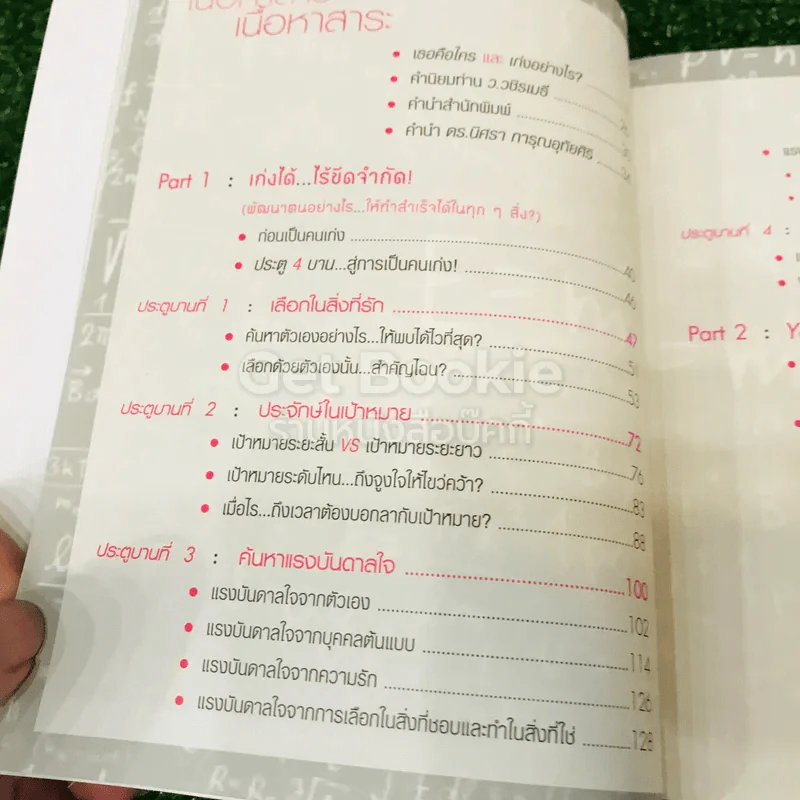 เนื้อหาสาระ
• เธอคือใคร และ เก่งอย่างไร?
• คำนิยมท่าน ว.วชิรเมธี
• คำนำสำนักพิมพ์
• คำนำ ดร.นิศรา การุณอุทัยศิริ
Part 1 : เก่งได้...ไร้ขีดจำกัด!
(พัฒนาตนอย่างไร...ให้ทำสำเร็จได้ในทุก ๆ สิ่ง?)
• ก่อนเป็นคนเก่ง 40
• ประตู 4 บาน...สู่การเป็นคนเก่ง! 46
ประตูบานที่ 1 : เลือกในสิ่งที่รัก 49
• ค้นหาตัวเองอย่างไร...ให้พบได้ไวที่สุด? 51
• เลือกด้วยตัวเองนั้น...สำคัญไฉน? 53
ประตูบานที่ 2 : ประจักษ์ในเป้าหมาย 72
• เป้าหมายระยะสั้น VS เป้าหมายระยะยาว 76
• เป้าหมายระดับไหน...ถึงจูงใจให้ไขว่คว้า? 83
• เมื่อไร...ถึงเวลาต้องบอกลากับเป้าหมาย? 88
ประตูบานที่ 3 : ค้นหาแรงบันดาลใจ 100
• แรงบันดาลใจจากตัวเอง 102
• แรงบันดาลใจจากบุคคลต้นแบบ 114
• แรงบันดาลใจจากความรัก 126
• แรงบันดาลใจจากการเลือกในสิ่งที่ชอบและทำในสิ่งที่ใช่ 128
ประตูบานที่ 4 :
Part 2 :
Get Bookie
ร้านหนังสือบุ๊คกี้